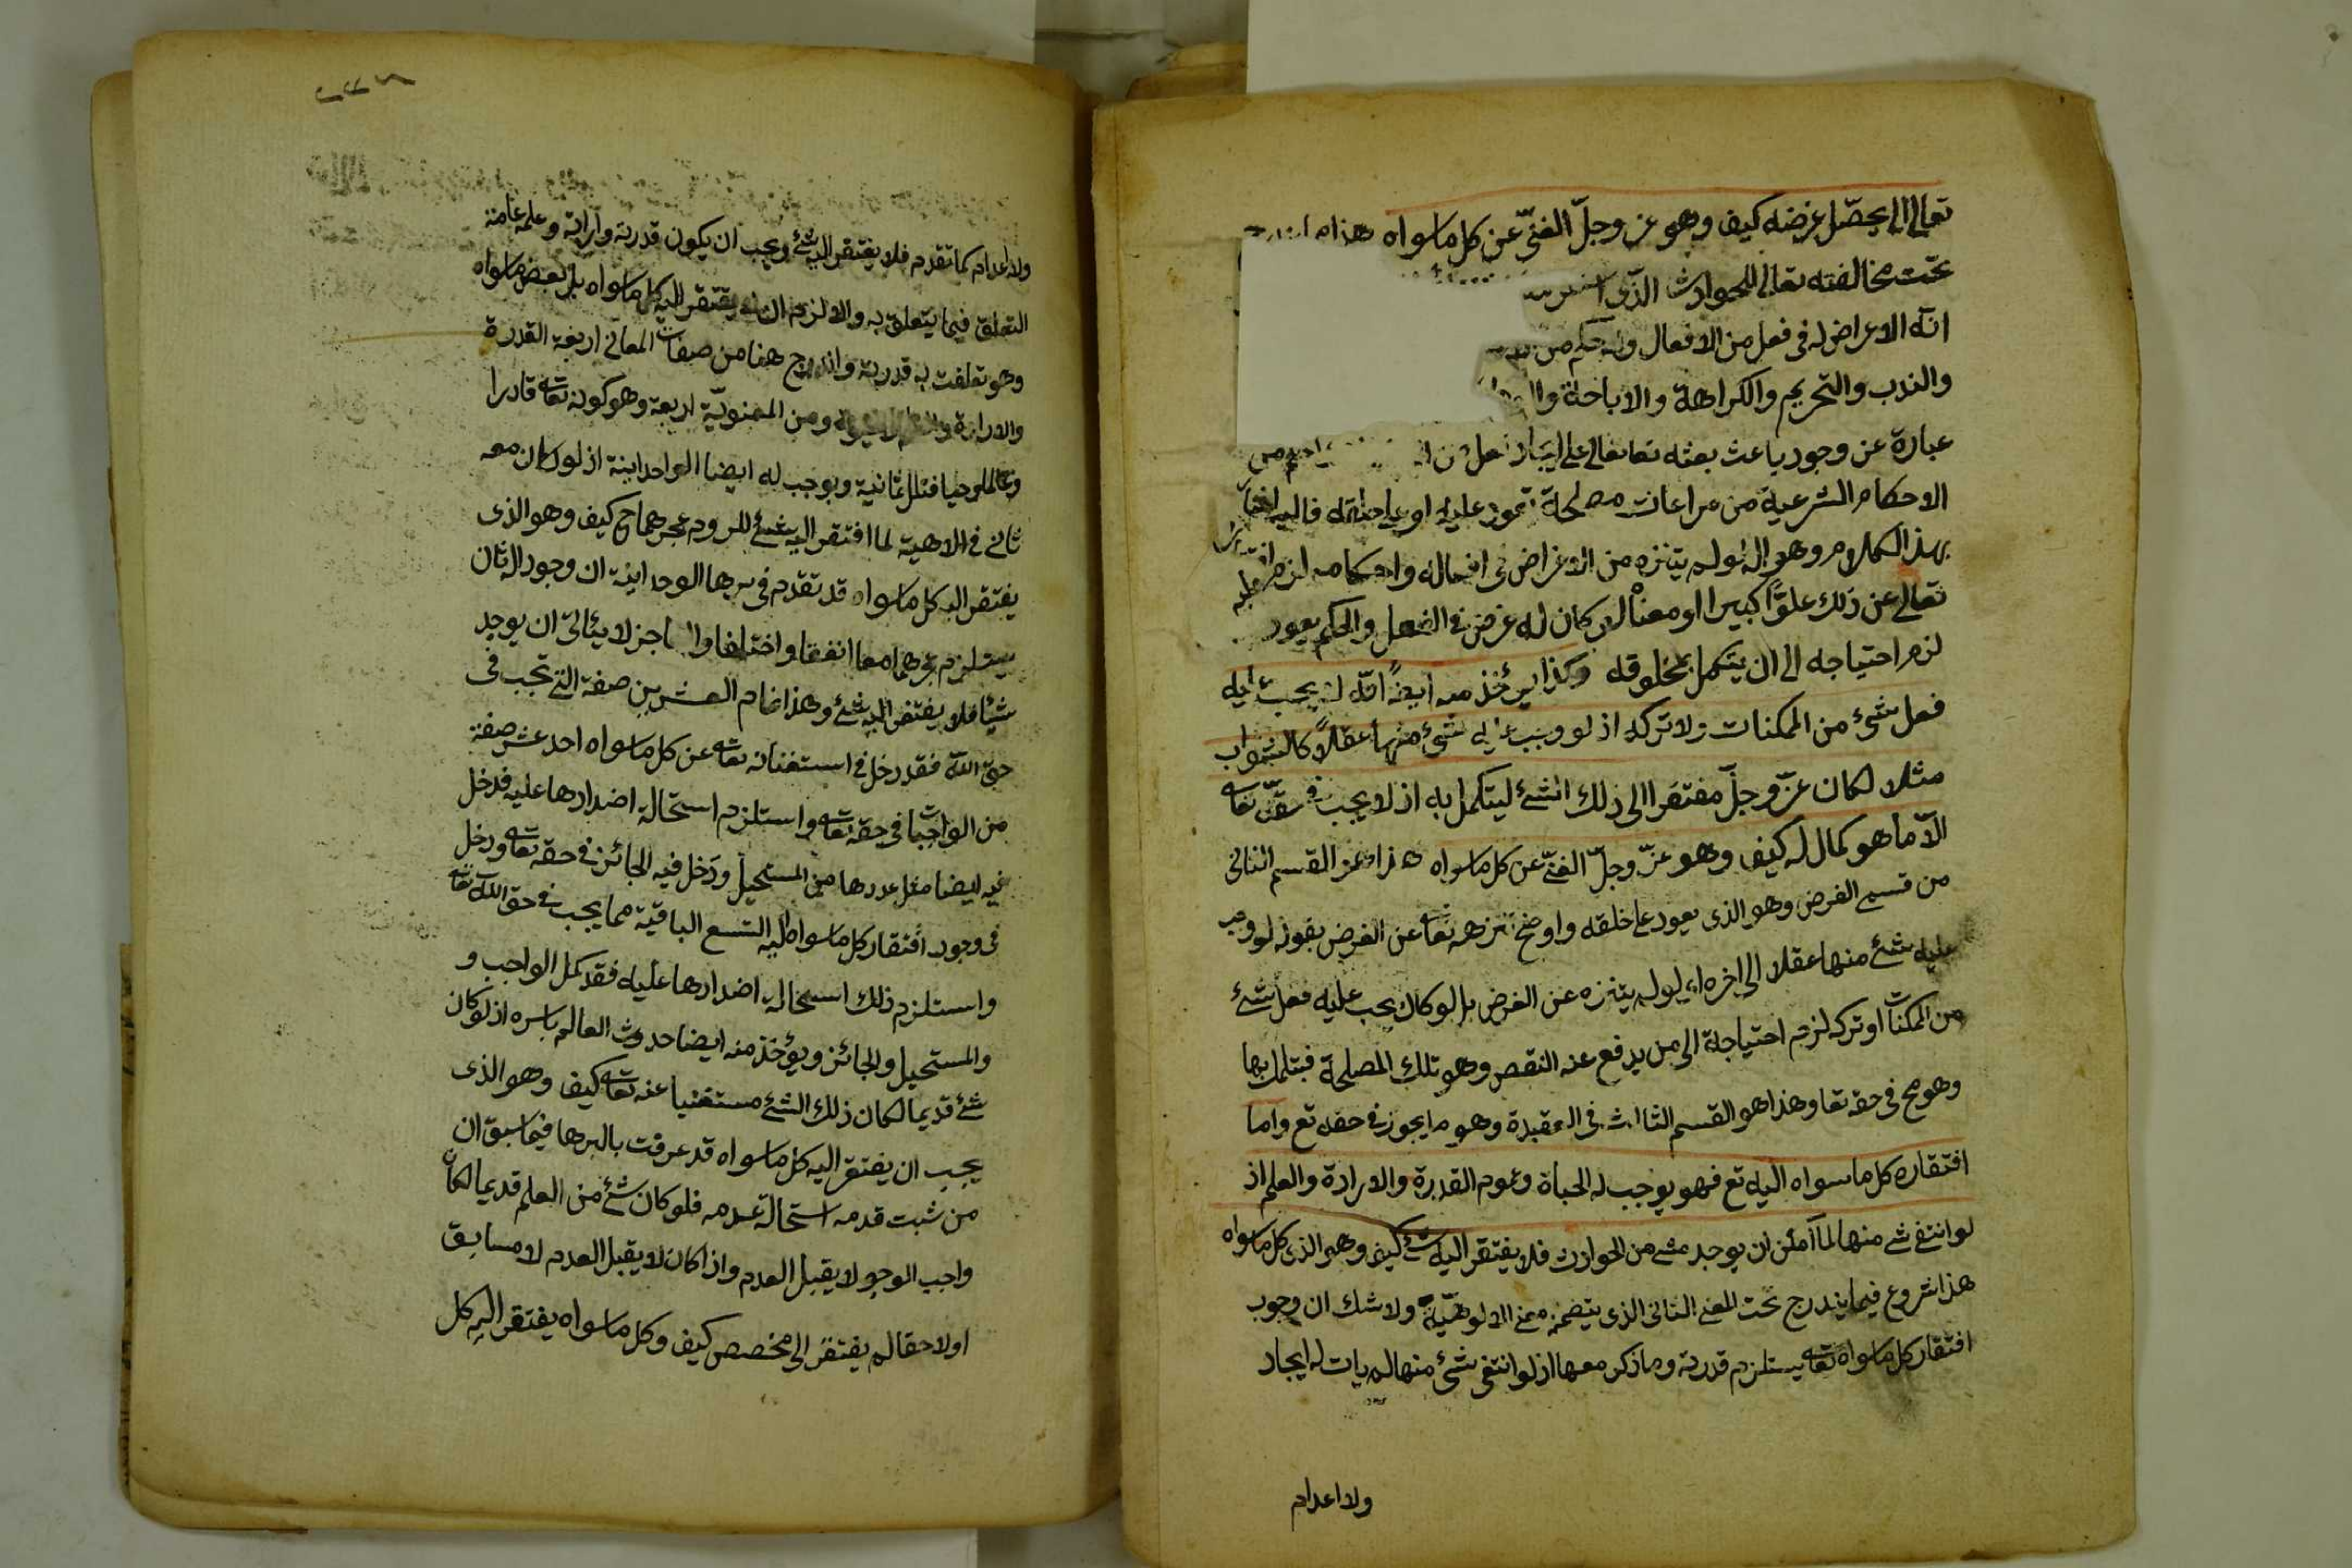 تعالى الى يحصّل غرضه كيف وهو عز وجلّ الغنيّ عن كل ماسواه هذا
تحت مخالفته تعالى للحوادث الذي
انّه لاغراض له في فعل من الافعال ولا حكم من
والندب والتحريم والكراهة والاباحة
عبارة عن وجود باعث بعثه تعالى على ايجاد فعل من
الاحكام الشرعية من مراعات مصلحة تعود عليه او على خلقه
بهذا الكلام وهو انه لو لم يتنزه من الاغراض في افعاله واحكامه لزم
تعالى عن ذلك علوًّا كبيرا او معناه لو كان له غرض في الفعل والحكم يعود
لزم احتياجه الى ان يتكمل بمخلوقه وكذا يؤخذ منه ايضًا انّه لا يجب عليه
فعل شئ من الممكنات ولا تركه اذ لو وجب عليه شئ منها عقلاً كالثواب
مثلا لكان عزّ وجلّ مفتقرا الى ذلك الشئ ليتكمل به اذ لا يجب في حقّه تعا
الّا ما هو كمال له كيف وهو عزّ وجلّ الغنيّ عن كل ماسواه هذا هو القسم الثاني
من قسمى الغرض وهو الذي يعود على خلقه واوضح تنزهه تعا عن الغرض بقوله لو وجب
عليه شئ منها عقلا الى اخره اى لو لم يتنزه عن الغرض بل لو كان يجب عليه فعل شئ
من الممكنات او تركه لزم احتياجة الى من يدفع عنه النقص وهو تلك المصلحة فيتكمل بها
وهو مح في حقه تعا وهذا هو القسم الثالث في العقيدة وهو ما يجوز في حقه تع واما
افتقاره كل ماسواه اليه تع فهو يوجب له الحياة وعموم القدرة والارادة والعلم اذ
لو انتفى شئ منها لما آمكن ان يوجد شئ من الحوادث فلا يفتقر اليه شئ كيف وهو الذي كل ماسواه
هذا شروع فيما يندرج تحت المعنى الثاني الذي يتضمنه معنى الالوهيّة ولا شك ان وجوب
افتقار كل ماسواه تعا يستلزم قدرته وما ذكر معها اذ لو انتفى شئ منها لم يات له ايجاد
ولا اعدام
ولا اعدام كما تقدم فلا يفتقر اليه شئ ويجب ان يكون قدرته وارادته وعلمه عامة
التعلق فيما يتعلق به والا لزم ان لا يفتقر اليه كل ماسواه بل بعض ماسواه
وهو تعلقت به قدرته واندرج هنا من صفات المعانى اربعة القدرة
والارادة والعلم والحيوة ومن المعنويّة اربعة وهو كونه تعا قادرا
وعالما وحيا فتلك ثمانية ويوجب له ايضا الواحدانية اذ لو كان معه
ثانى في الالاهية لما افتقر اليه شئ للزوم عجزهما ح كيف وهو الذى
يفتقر اليه كل ماسواه قد تقدم في برها الوحدانية ان وجود الثان
يستلزم عجزهما معا اتفقا او اختلفا والعاجز لا يتأتى ان يوجد
شيئا فلا يفتقر اليه شئ وهذا تمام العشرين صفة التى تجب في
حقّ اللّه فقد دخل في استغنائه تعا عن كل ماسواه احد عشر صفة
من الواجبات في حقه تعا واستلزم استحالة اضدادها عليه فدخل
فيه ايضا مثل عددها من المستحيل ودخل فيه الجائز في حقه تعا ودخل
في وجوب افتقار كل ماسواه اليه التسع الباقية مما يجب في حق اللّه تعا
واستلزم ذلك استحالة اضدادها عليه فقد كمل الواجب و
والمستحيل والجائز ويؤخذ منه ايضا حدوث العالم باسره اذ لو كان
شئ قديما لكان ذلك الشئ مستغنيا عنه تعا كيف وهو الذى
يجب ان يفتقر اليه كل ماسواه قد عرفت بالبرها فيما سبق ان
من ثبت قدمه استحالة عدمه فلو كان شئ من العلم قديما لكان
واجب الوجو لا يقبل العدم واذا كان لا يقبل العدم لا مسابق
او لاحقا لم يفتقر الى مخصص كيف وكل ماسواه يفتقر اليه كل